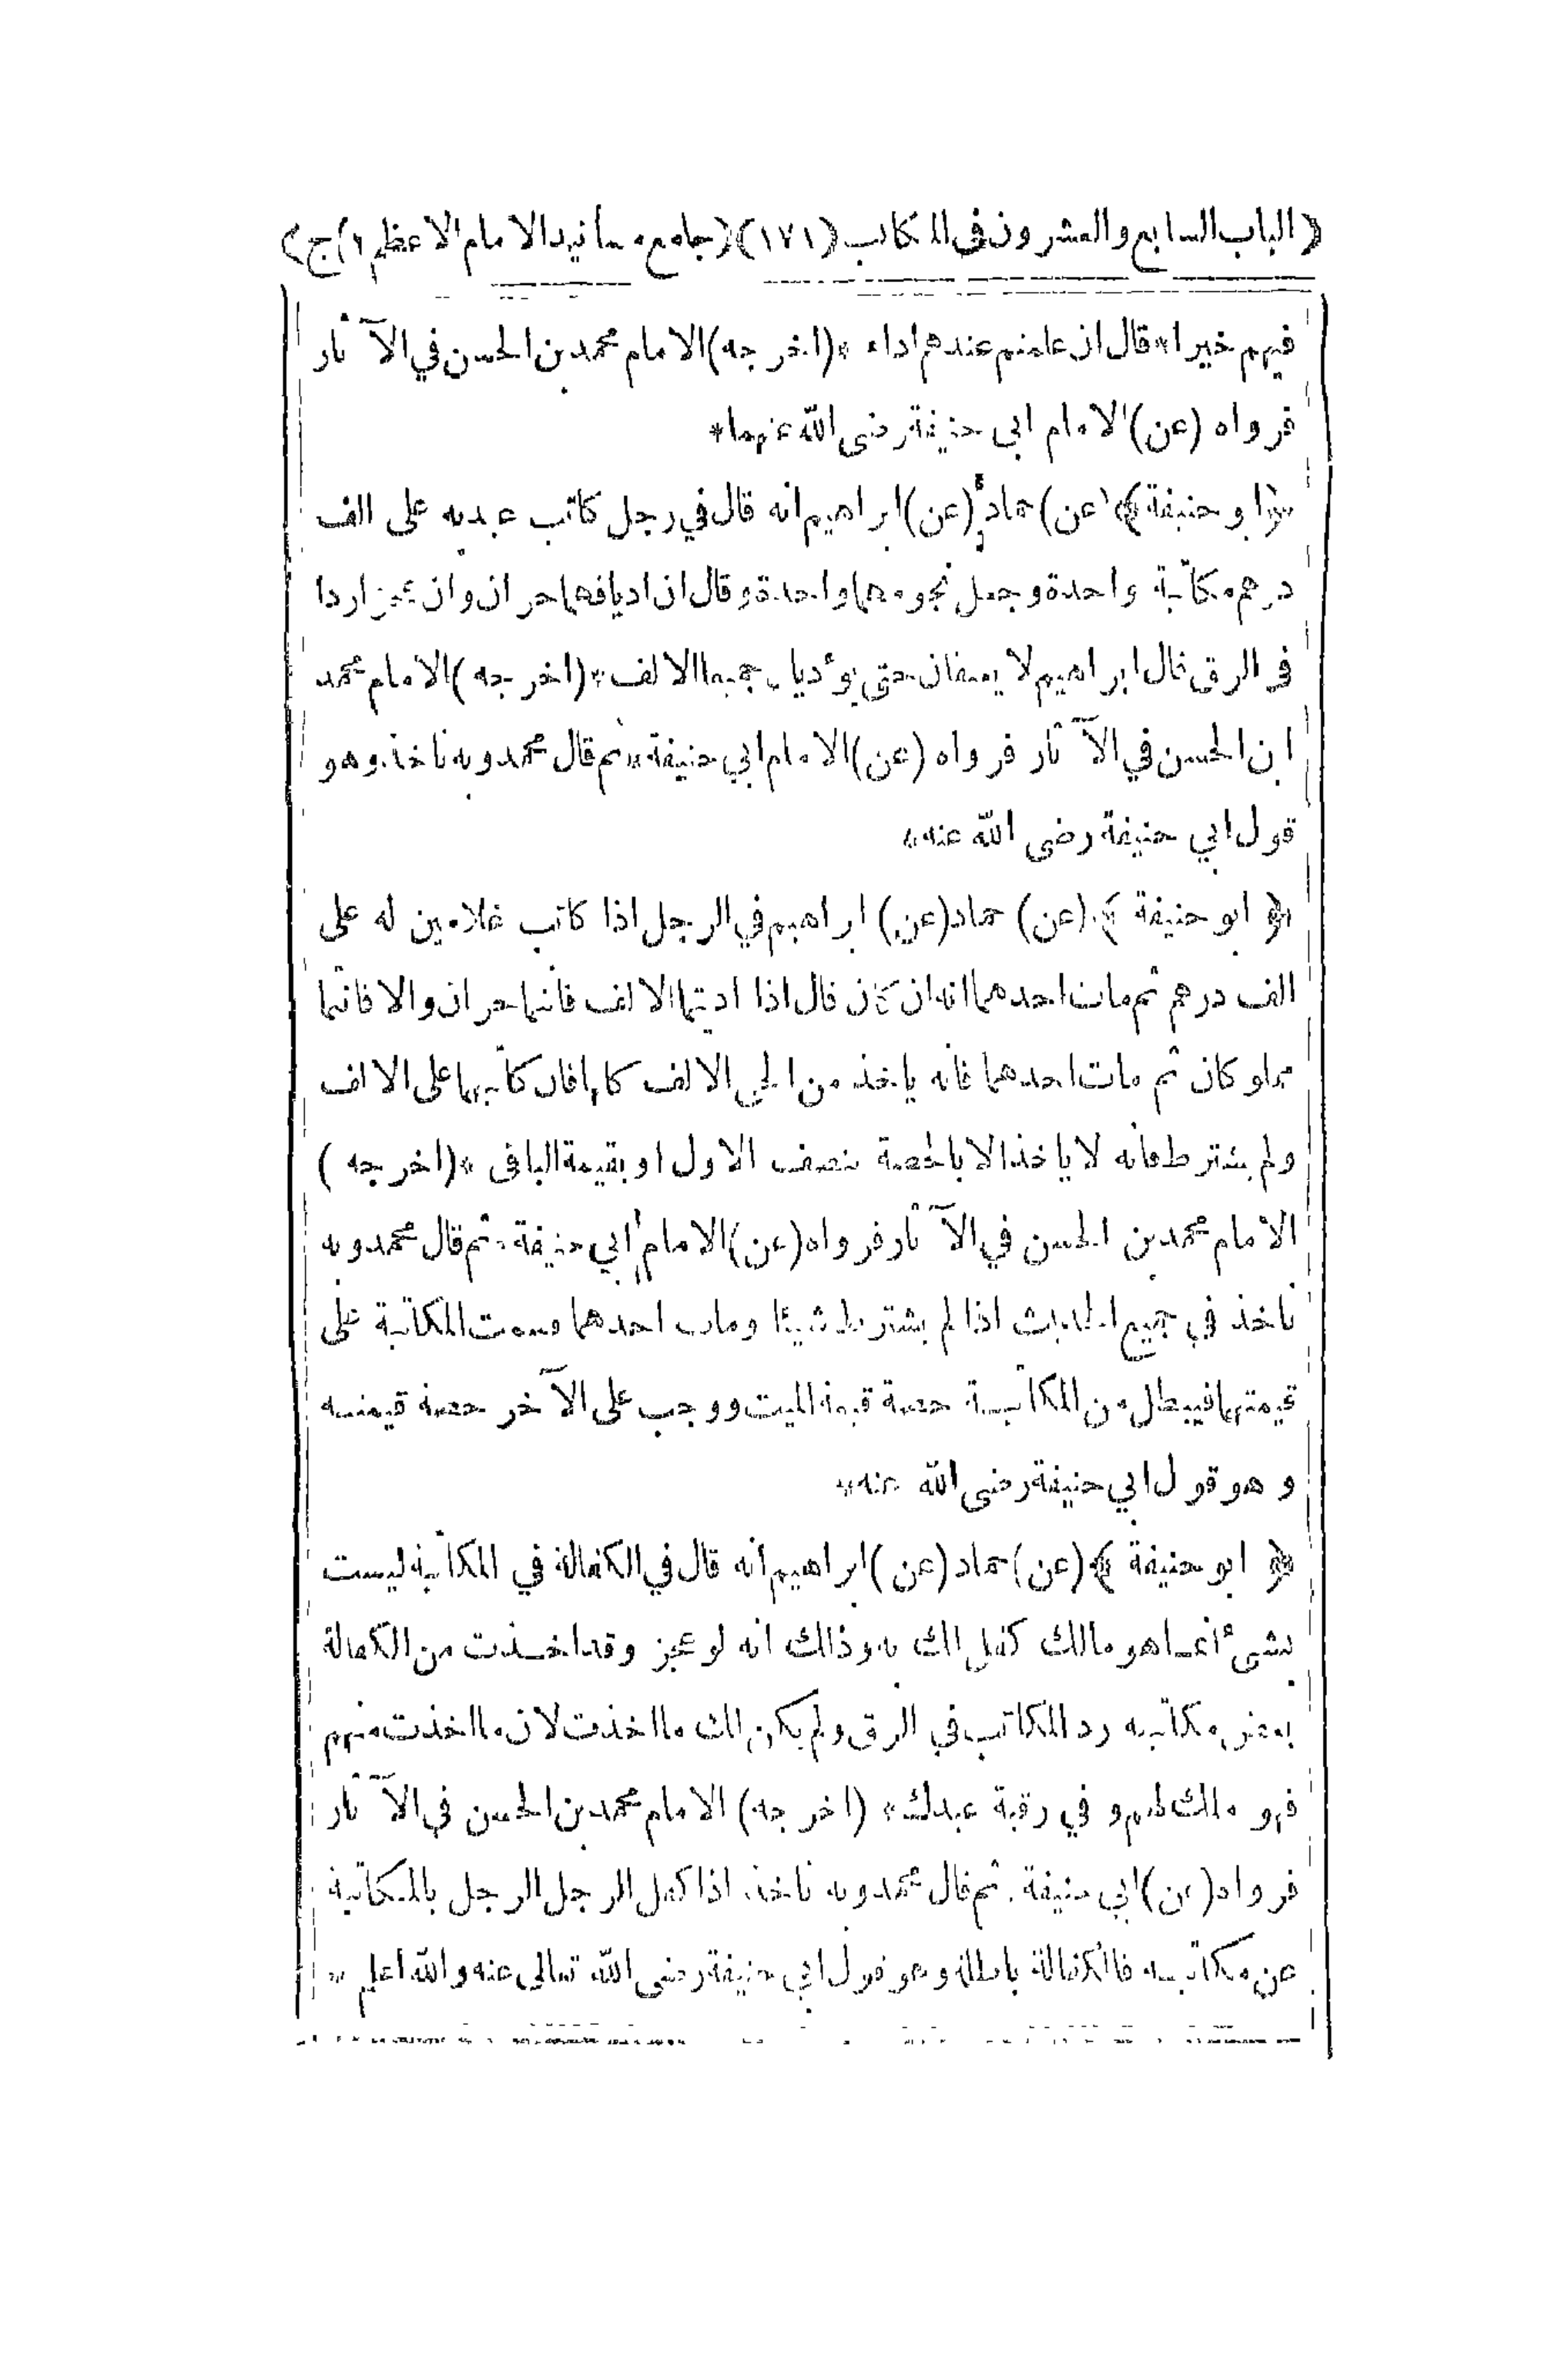 (الباب السابع والعشرون في المكاتب) (١٧١) (جامع مسانيد الامام الاعظم ج)
فيهم خيرا * قال ان علمتم عندهم اداء * (اخرجه) الامام محمد بن الحسن في الآثار
فرواه (عن) الامام ابي حنيفة رضى الله عنهما *
ابو حنيفة ﴾ (عن) حماد (عن) ابراهيم انه قال في رجل كاتب عبديه على الف
درهم مكاتبة واحدة وجعل نجومهما واحدة وقال ان اديا فهما حران وان عجزا ردا
في الرق قال ابراهيم لا يعتقان حتى يؤديا جميعا الالف * (اخرجه) الامام محمد
ابن الحسن في الآثار فرواه (عن) الامام ابي حنيفة * ثم قال محمد وبه ناخذ وهو
قول ابي حنيفة رضى الله عنه *
﴿ ابو حنيفة ﴾ (عن) حماد (عن) ابراهيم في الرجل اذا كاتب غلامين له على
الف درهم ثم مات احدهما انه ان كان قال اذا اديتما الالف فانتما حران والا فانتما
مملوكان ثم مات احدهما فانه ياخذ من الحي الالف كلها فان كاتبهما على الالف
ولم يشترط فانه لا ياخذ الا بالحصة نصف الاول او بقيمة الباقى * (اخرجه)
الامام محمد بن الحسن في الآثار فرواه (عن) الامام ابي حنيفة * ثم قال محمد وبه
ناخذ في جميع الحديث اذا لم يشترط شيئا ومات احدهما قسمت المكاتبة على
قيمتهما فيبطل من المكاتبة حصة قيمة الميت ووجب على الآخر حصة قيمته
و هو قول ابي حنيفة رضى الله عنه *
﴿ ابو حنيفة ﴾ (عن) حماد (عن) ابراهيم انه قال في الكفالة في المكاتبة ليست
بشئ انما هو مالك كفل لك به وذالك انه لو عجز وقد اخذت من الكفالة
بعض مكاتبته رد المكاتب في الرق ولم يكن لك ما اخذت لان ما اخذت منهم
فهو ملك لهم و في رقبة عبدك * (اخرجه) الامام محمد بن الحسن في الآثار
فرواه (عن) ابي حنيفة * ثم قال محمد وبه ناخذ * اذا كفل الرجل الرجل بالمكاتبة
عن مكاتبه فالكفالة باطلة وهو قول ابي حنيفة رضى الله تعالى عنه والله اعلم *